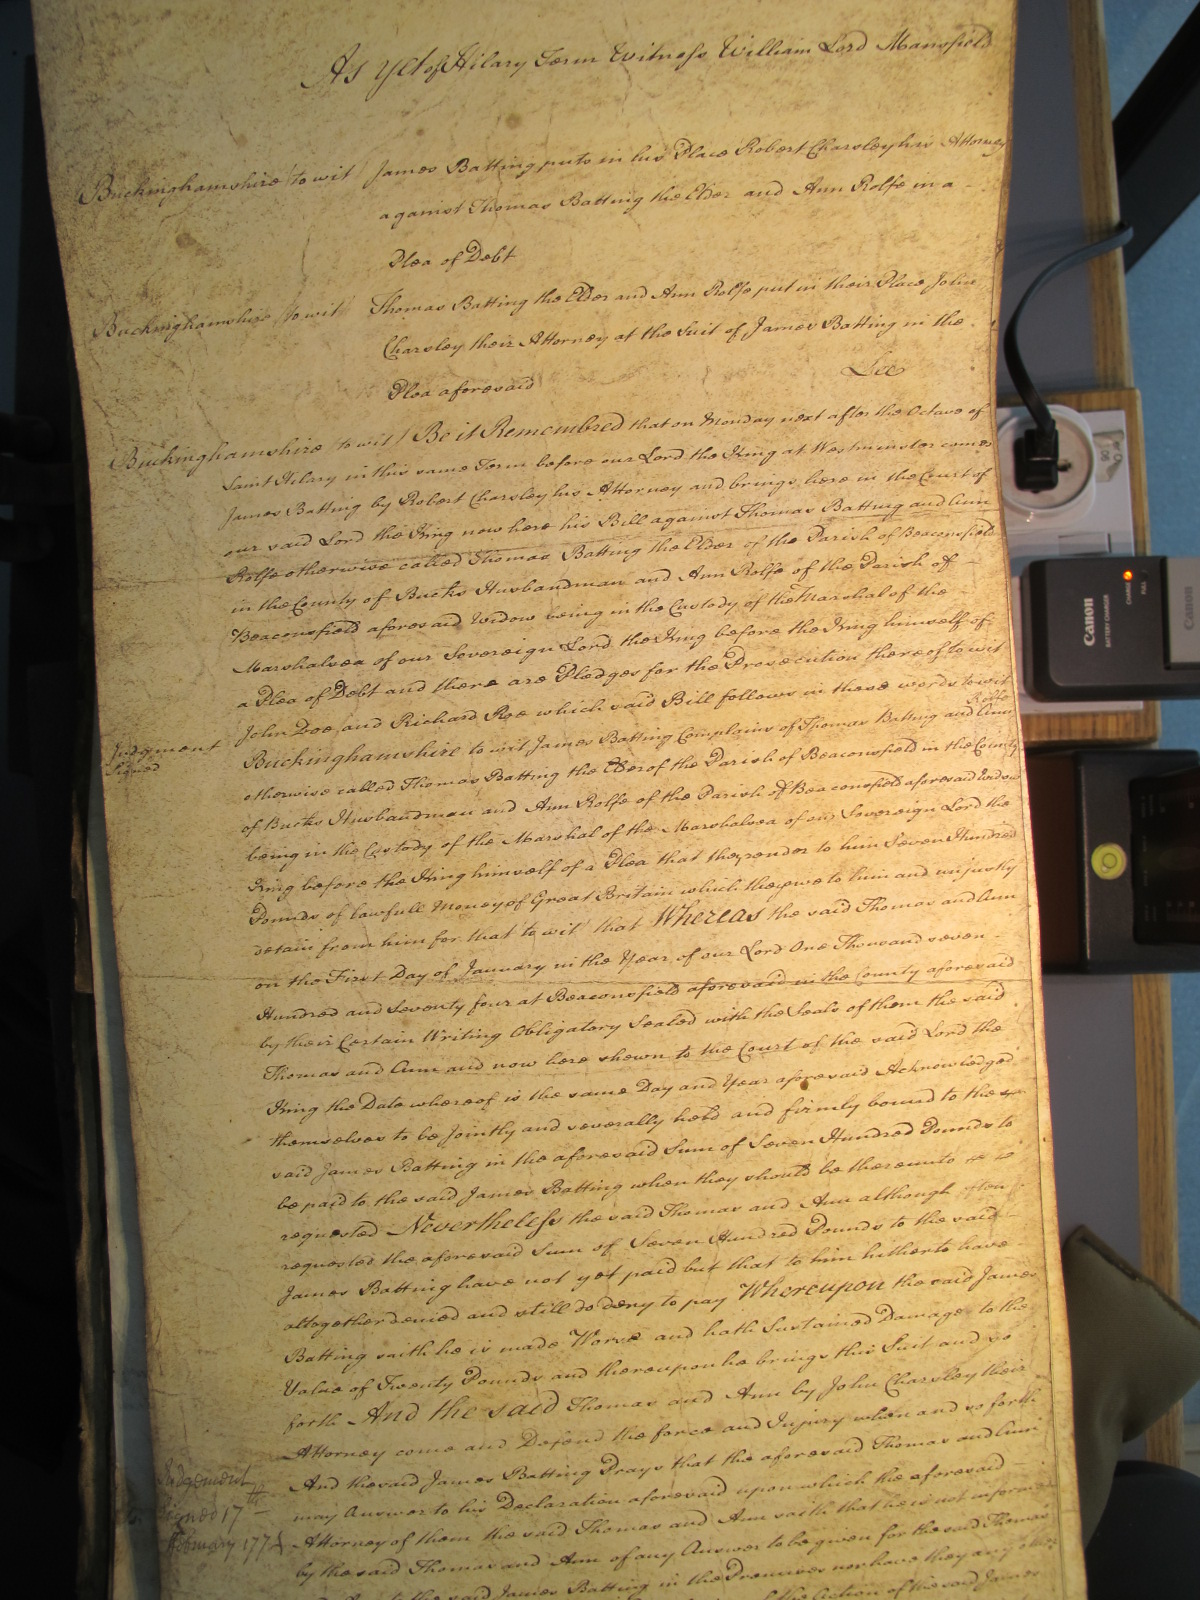 As Yet of Hilary Term Witness William Lord Mansfield
Buckinghamshire /to wit/ James Batting puts in his Place Robert Charsley his Attorney
against Thomas Batting the Elder and Ann Rolfe in a -
Plea of Debt
Buckinghamshire /to wit/ Thomas Batting the Elder and Ann Rolfe put in their Place John
Charsley their Attorney at the Suit of James Batting in the
Plea aforesaid
Lee
Buckinghamshire /to wit/ Be it Remembred that on Monday next after the Octave of
Saint Hilary in this same Term before our Lord the King at Westminster comes
James Batting by Robert Charsley his Attorney and brings here in the Court of
our said Lord the King now here his Bill against Thomas Batting and Ann
Rolfe otherwise called Thomas Batting the Elder of the Parish of Beaconsfield
in the County of Bucks Husbandman and Ann Rolfe of the Parish of -
Beaconsfield aforesaid Widow being in the Custody of the Marshal of the
Marshalsea of our Sovereign Lord the King before the King himself of
a Plea of Debt and there are Pledges for the Prosecution thereof to wit
John Doe and Richard Roe which said Bill follows in these words to wit
Judgment
Signed
Buckinghamshire to wit James Batting Complains of Thomas Batting and Ann Rolfe
otherwise called Thomas Batting the Elder of the Parish of Beaconsfield in the County
of Bucks Husbandman and Ann Rolfe of the Parish of Beaconsfield aforesaid Widow
being in the Custody of the Marshal of the Marshalsea of our Sovereign Lord the
King before the King himself of a Plea that they render to him Seven Hundred
Pounds of lawfull Money of Great Britain which they owe to him and unjustly
detain from him for that to wit that Whereas the said Thomas and Ann
on the First Day of January in the Year of our Lord One Thousand seven -
Hundred and Seventy four at Beaconsfield aforesaid in the County aforesaid
by their Certain Writing Obligatory Sealed with the Seals of them the said
Thomas and Ann and now here shewn to the Court of the said Lord the
King the Date whereof is the same Day and Year aforesaid Acknowledged
themselves to be jointly and severally held and firmly bound to the
said James Batting in the aforesaid Sum of Seven Hundred Pounds to
be paid to the said James Batting when they should be thereunto
requested Nevertheless the said Thomas and Ann although often
requested the aforesaid Sum of Seven Hundred Pounds to the said -
James Batting have not yet paid but that to him hitherto have
altogether denied and still do deny to pay Whereupon the said James
Batting saith he is made Worse and hath Sustained Damage to the
Value of Twenty Pounds and thereupon he brings this Suit and so
forth And the said Thomas and Ann by John Charsley their
Attorney come and Defend the force and Injury when and so forth
And the said James Batting Prays that the aforesaid Thomas and Ann
Judgement
Signed 17th
February 1774
may Answer to his Declaration aforesaid upon which the aforesaid -
Attorney of them the said Thomas and Ann saith that he is not informed
by the said Thomas and Ann of any Answer to be given for the said Thomas
the said James Batting in the Premises nor have they any
of the Action of the said James
Canon
BATTERY CHARGER
CHARGE
FULL
Canon